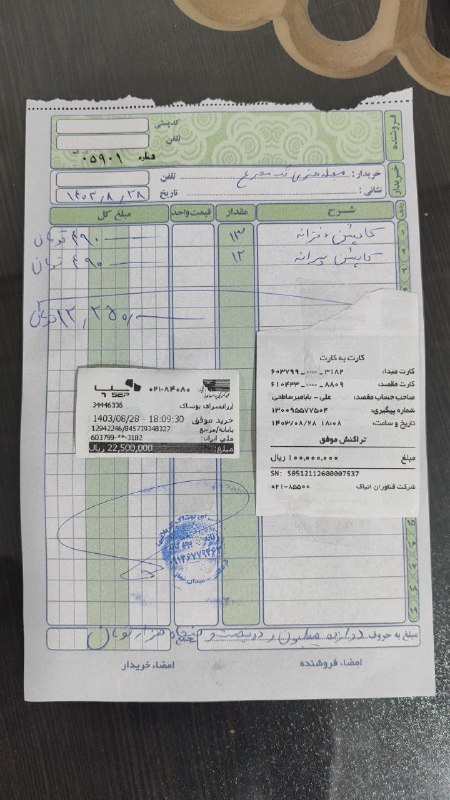 فروشنده
کدپستی
تلفن
شماره ۰۵۹۰۱
خریدار
خریدار :
تلفن
نشانی :
تاریخ ۱۴۰۳/۸/۲۸
ردیف
شرح
مقدار
قیمت واحد
مبلغ کل
۱
کاپشن دخترانه
۱۳
۴۹۰ تومان
۲
کاپشن پسرانه
۱۲
۴۹۰ تومان
۱۲,۲۵۰/
۰۲۱-۸۴۰۸۰
SEP
34446336
ارزانسرای پوشاک
خرید موفق 18:09:30 - 1403/08/28
پایانه/مرجع 12942246/845739348327
ملی ایران: 603799-**-3182
مبلغ: 22,500,000 ریال
کارت به کارت
کارت مبدا: ۶۰۳۷۹۹_۰۰۰۰_۳۱۸۲
کارت مقصد: ۶۱۰۴۳۳_۰۰۰۰_۸۸۰۹
صاحب حساب مقصد:
شماره پیگیری: ۱۳۰۰۹۵۵۷۷۵۰۴
تاریخ و ساعت: ۱۴۰۳/۰۸/۲۸ ۱۸:۰۸
تراکنش موفق
مبلغ ۱۰۰,۰۰۰,۰۰۰ ریال
SN: S0512112600007537
شرکت فناوران انیاک ۰۲۱-۸۵۵۰۰
مبلغ به حروف دوازده میلیون و دویست و پنجاه هزار تومان
امضاء فروشنده
امضاء خریدار